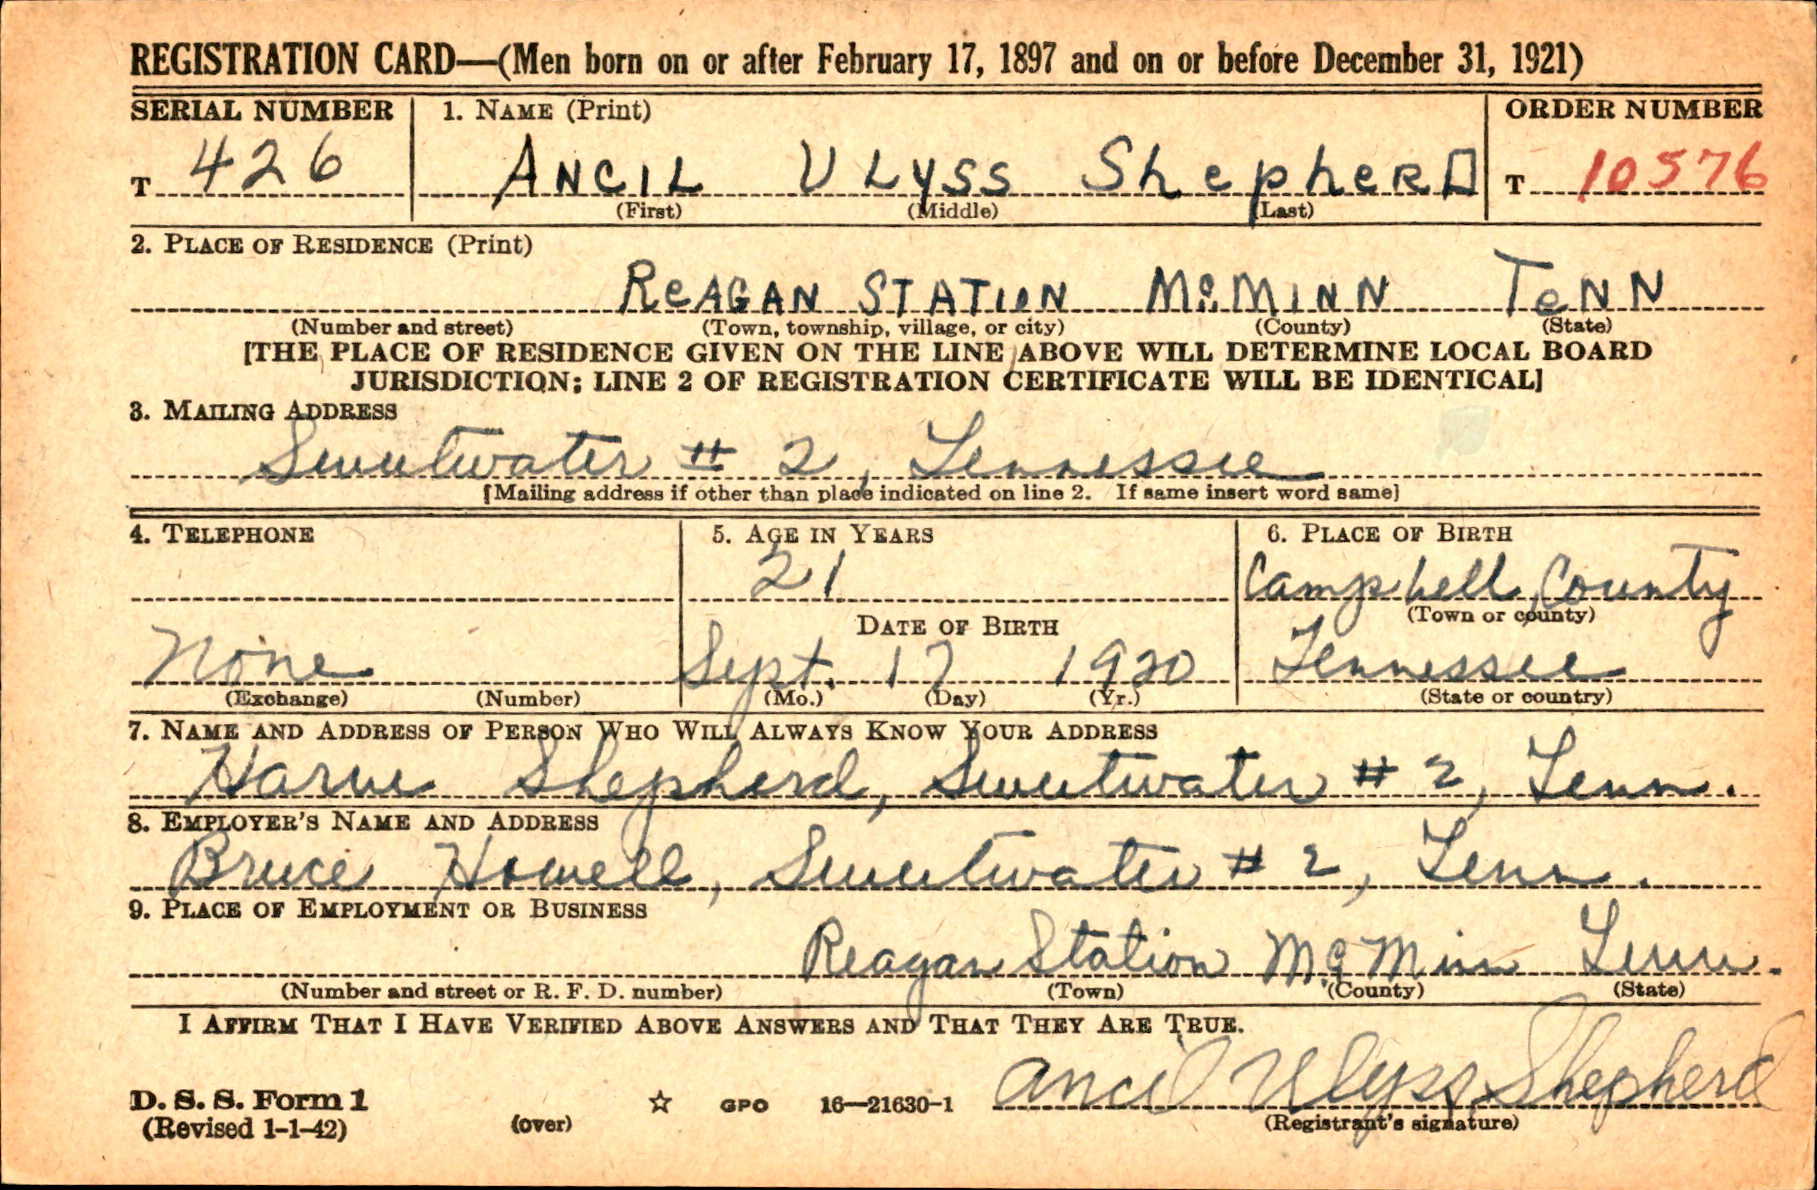 REGISTRATION CARD—(Men born on or after February 17, 1897 and on or before December 31, 1921)
SERIAL NUMBER 1. NAME (Print) ORDER NUMBER
T 426 ANCIL ULYSS ShephERD T 10576
(First) (Middle) (Last)
2. PLACE OF RESIDENCE (Print)
ReAGAN STATION McMINN TeNN
(Number and street) (Town, township, village, or city) (County) (State)
[THE PLACE OF RESIDENCE GIVEN ON THE LINE ABOVE WILL DETERMINE LOCAL BOARD
JURISDICTION; LINE 2 OF REGISTRATION CERTIFICATE WILL BE IDENTICAL]
3. MAILING ADDRESS
Sweetwater # 2, Tennessee
[Mailing address if other than place indicated on line 2. If same insert word same]
4. TELEPHONE 5. AGE IN YEARS 6. PLACE OF BIRTH
21 Campbell County
DATE OF BIRTH (Town or county)
None Sept. 17 1920 Tennessee
(Exchange) (Number) (Mo.) (Day) (Yr.) (State or country)
7. NAME AND ADDRESS OF PERSON WHO WILL ALWAYS KNOW YOUR ADDRESS
Shepherd, Sweetwater # 2, Tenn.
8. EMPLOYER'S NAME AND ADDRESS
Bruce Howell, Sweetwater # 2, Tenn.
9. PLACE OF EMPLOYMENT OR BUSINESS
Reagan Station McMinn Tenn.
(Number and street or R. F. D. number) (Town) (County) (State)
I AFFIRM THAT I HAVE VERIFIED ABOVE ANSWERS AND THAT THEY ARE TRUE.
D. S. S. Form 1 ☆ GPO 16—21630-1 Ancil Ulyss Shepherd
(Revised 1-1-42) (over) (Registrant's signature)